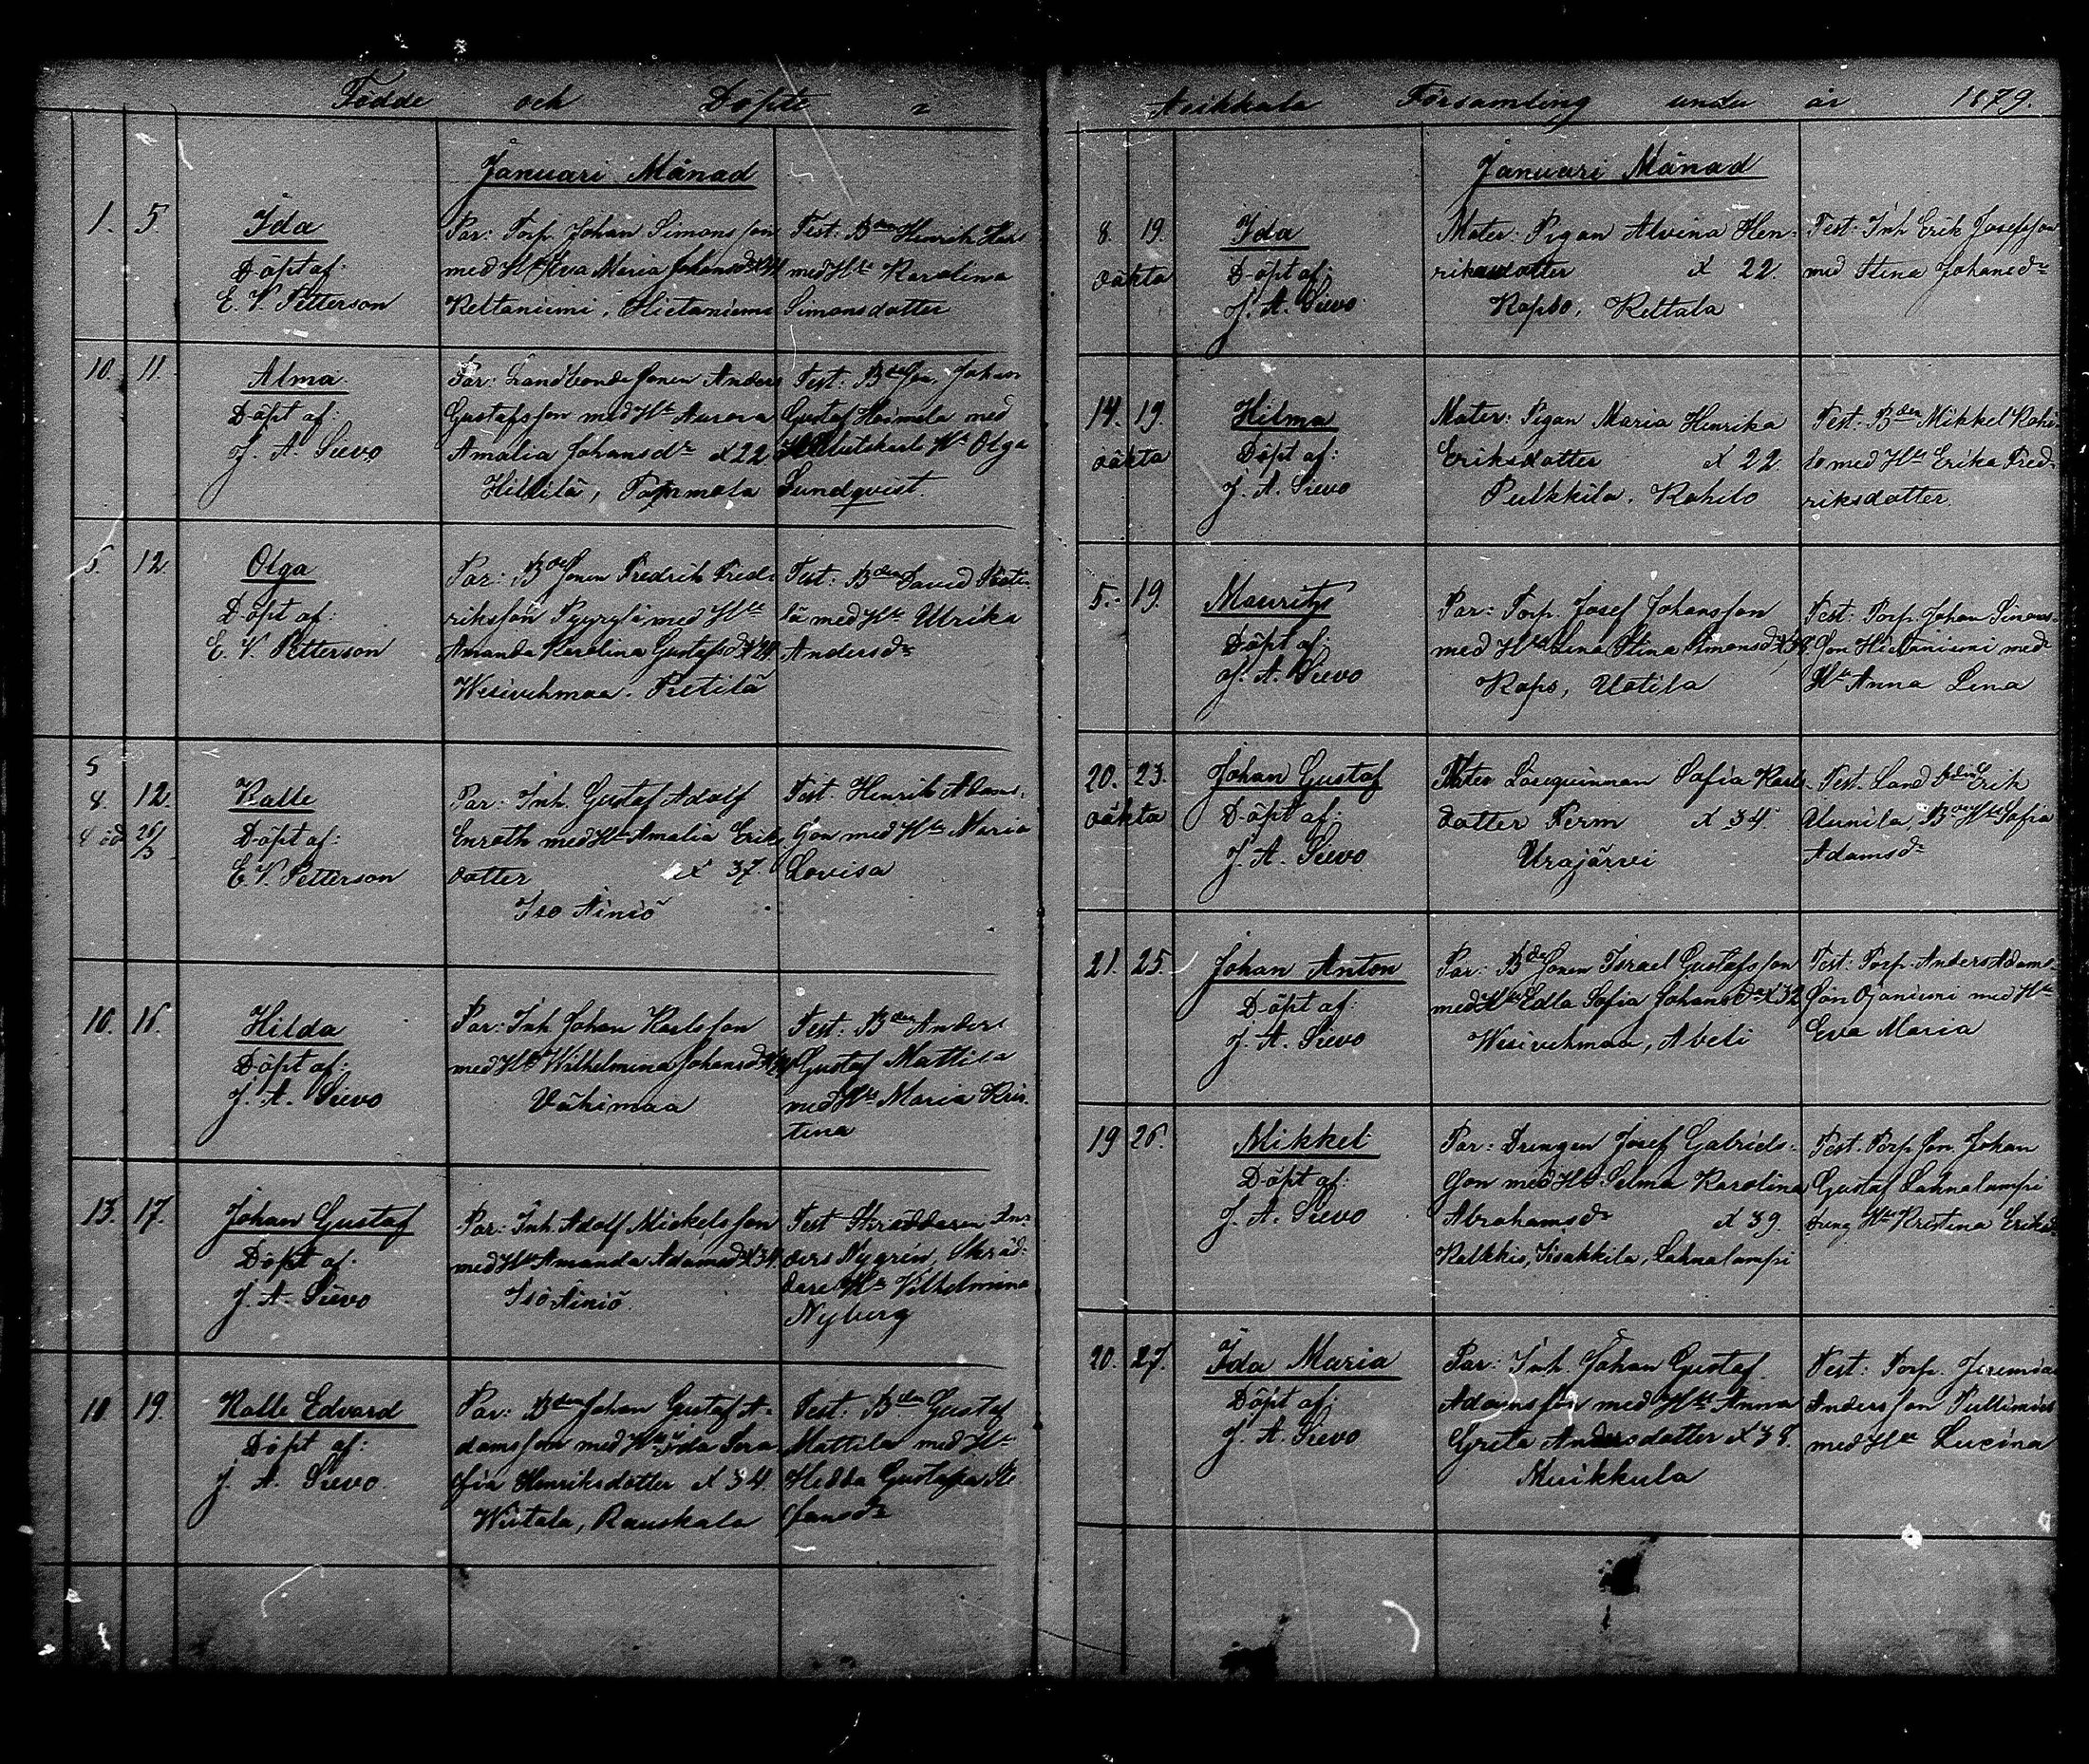 Födde och Döpte i
Januari Månad
1. 5. Ida
Döpt af:
E. V. Petterson
Par: Torp. Johan Simonsson
med Hu Eva Maria Johansdr
Keltaniemi, Hietaniemi
Test: Bden Henrik
med Hu Karolina
Simonsdotter
10. 11. Alma
Döpt af:
J. A. Sievo
Par: Landbonde Sonen Anders
Gustafsson med Hu Aurora
Amalia Johansdr æt 22
Hillilä,
Test: Bde Son. Johan
Gustaf Heimola med
Hu Olga
Lundqvist.
5. 12. Olga
Döpt af:
E. V. Petterson
Par: Bde Sonen Fredrik Fred-
riksson Pyyrylä med Hu
Amanda Karolina Gustafsdr
Wesivehmaa. Pietilä
Test: Bden David Pieti-
lä med Hu Ulrika
Andersdr
5
8. 12. Kalle
26/3
Döpt af:
E. V. Petterson
Par: Inh. Gustaf Adolf
Enroth med Hu Amalia Eriks
dotter æt 37.
Iso Äiniö
Test. Henrik Adams-
son med Hu Maria
Lovisa
10. 16. Hilda
Döpt af:
J. A. Sievo
Par: Inh. Johan Karlsson
med Hu Wilhelmina Johansdr
Vähimaa
Test: Bden Anders
Gustaf Mattila
med Hu Maria Kris-
tina
13. 17. Johan Gustaf
Döpt af:
J. A. Sievo
Par: Inh. Adolf Mickelsson
med Hu Amanda Adamsdr æt 34
Iso Äiniö.
Test Skräddaren An-
ders Nygrén, Skräd-
dare Hu Vilhelmina
Nyberg
10 19. Kalle Edvard
Döpt af:
J. A. Sievo.
Par: Bden Johan Gustaf A-
damsson med Hu Ida Sera
fia Henriksdotter æt 34
Wiitala, Rauskala
Test: Bden Gustaf
Mattila med Hu
Hedda Gustafva Ste
fansdr
Asikkala Församling under år 1879.
Januari Månad
8. 19. Ida
oäkta
Döpt af:
J. A. Sievo
Mater: Pigan Alvina Hen-
riksdotter æt 22.
Kopso, Keltala
Test: Inh Erik Josefsson
med Stina Johansdr
14. 19. Hilma
oäkta
Döpt af:
J. A. Sievo
Mater: Pigan Maria Henrika
Eriksdotter æt 22.
Pulkkila. Kohilo
Test: Bden Mikkel Kohi-
lo med Hu Erika Fred-
riksdotter.
5. 19. Mauritz
Döpt af:
J. A. Sievo
Par: Torp. Josef Johansson
med Hu Lena Stina Simonsdr
Kopso, Uotila
Test: Torp. Johan Simons-
son Hietaniemi med
Hu Anna Lena
20. 23. Johan Gustaf
oäkta
Döpt af:
J. A. Sievo
Mater Lösequinnan Sofia Karls
dotter Ferm æt 34.
Urajärvi
Test. Land Bden Erik
Uunila Bde Hu Sofia
Adamsdr
21. 25. Johan Anton
Döpt af:
J. A. Sievo
Par: Bde Sonen Israel Gustafsson
med Hu Edla Sofia Johansdr æt 32
Wesivehmaa, Abeli
Test: Torp. Anders Adams-
son Ojaniemi med Hu
Eva Maria
19 26. Mikkel
Döpt af:
J. A. Sievo
Par: Drengen Josef Gabriels-
son med Hu Selma Karolina
Abrahamsdr æt 39.
Kalkkis, Iisakkila, Lahnalampi
Test. Torp Son. Johan
Gustaf Lahnalampi
Dreng Hu Kristina Eriksdr
20. 27. Ida Maria
Döpt af:
J. A. Sievo
Par: Inh. Johan Gustaf
Adamsson med Hu Anna
Greta Andersdotter æt 38.
Muikkula
Test: Torp. Jeremias
Andersson
med Hu Lucina